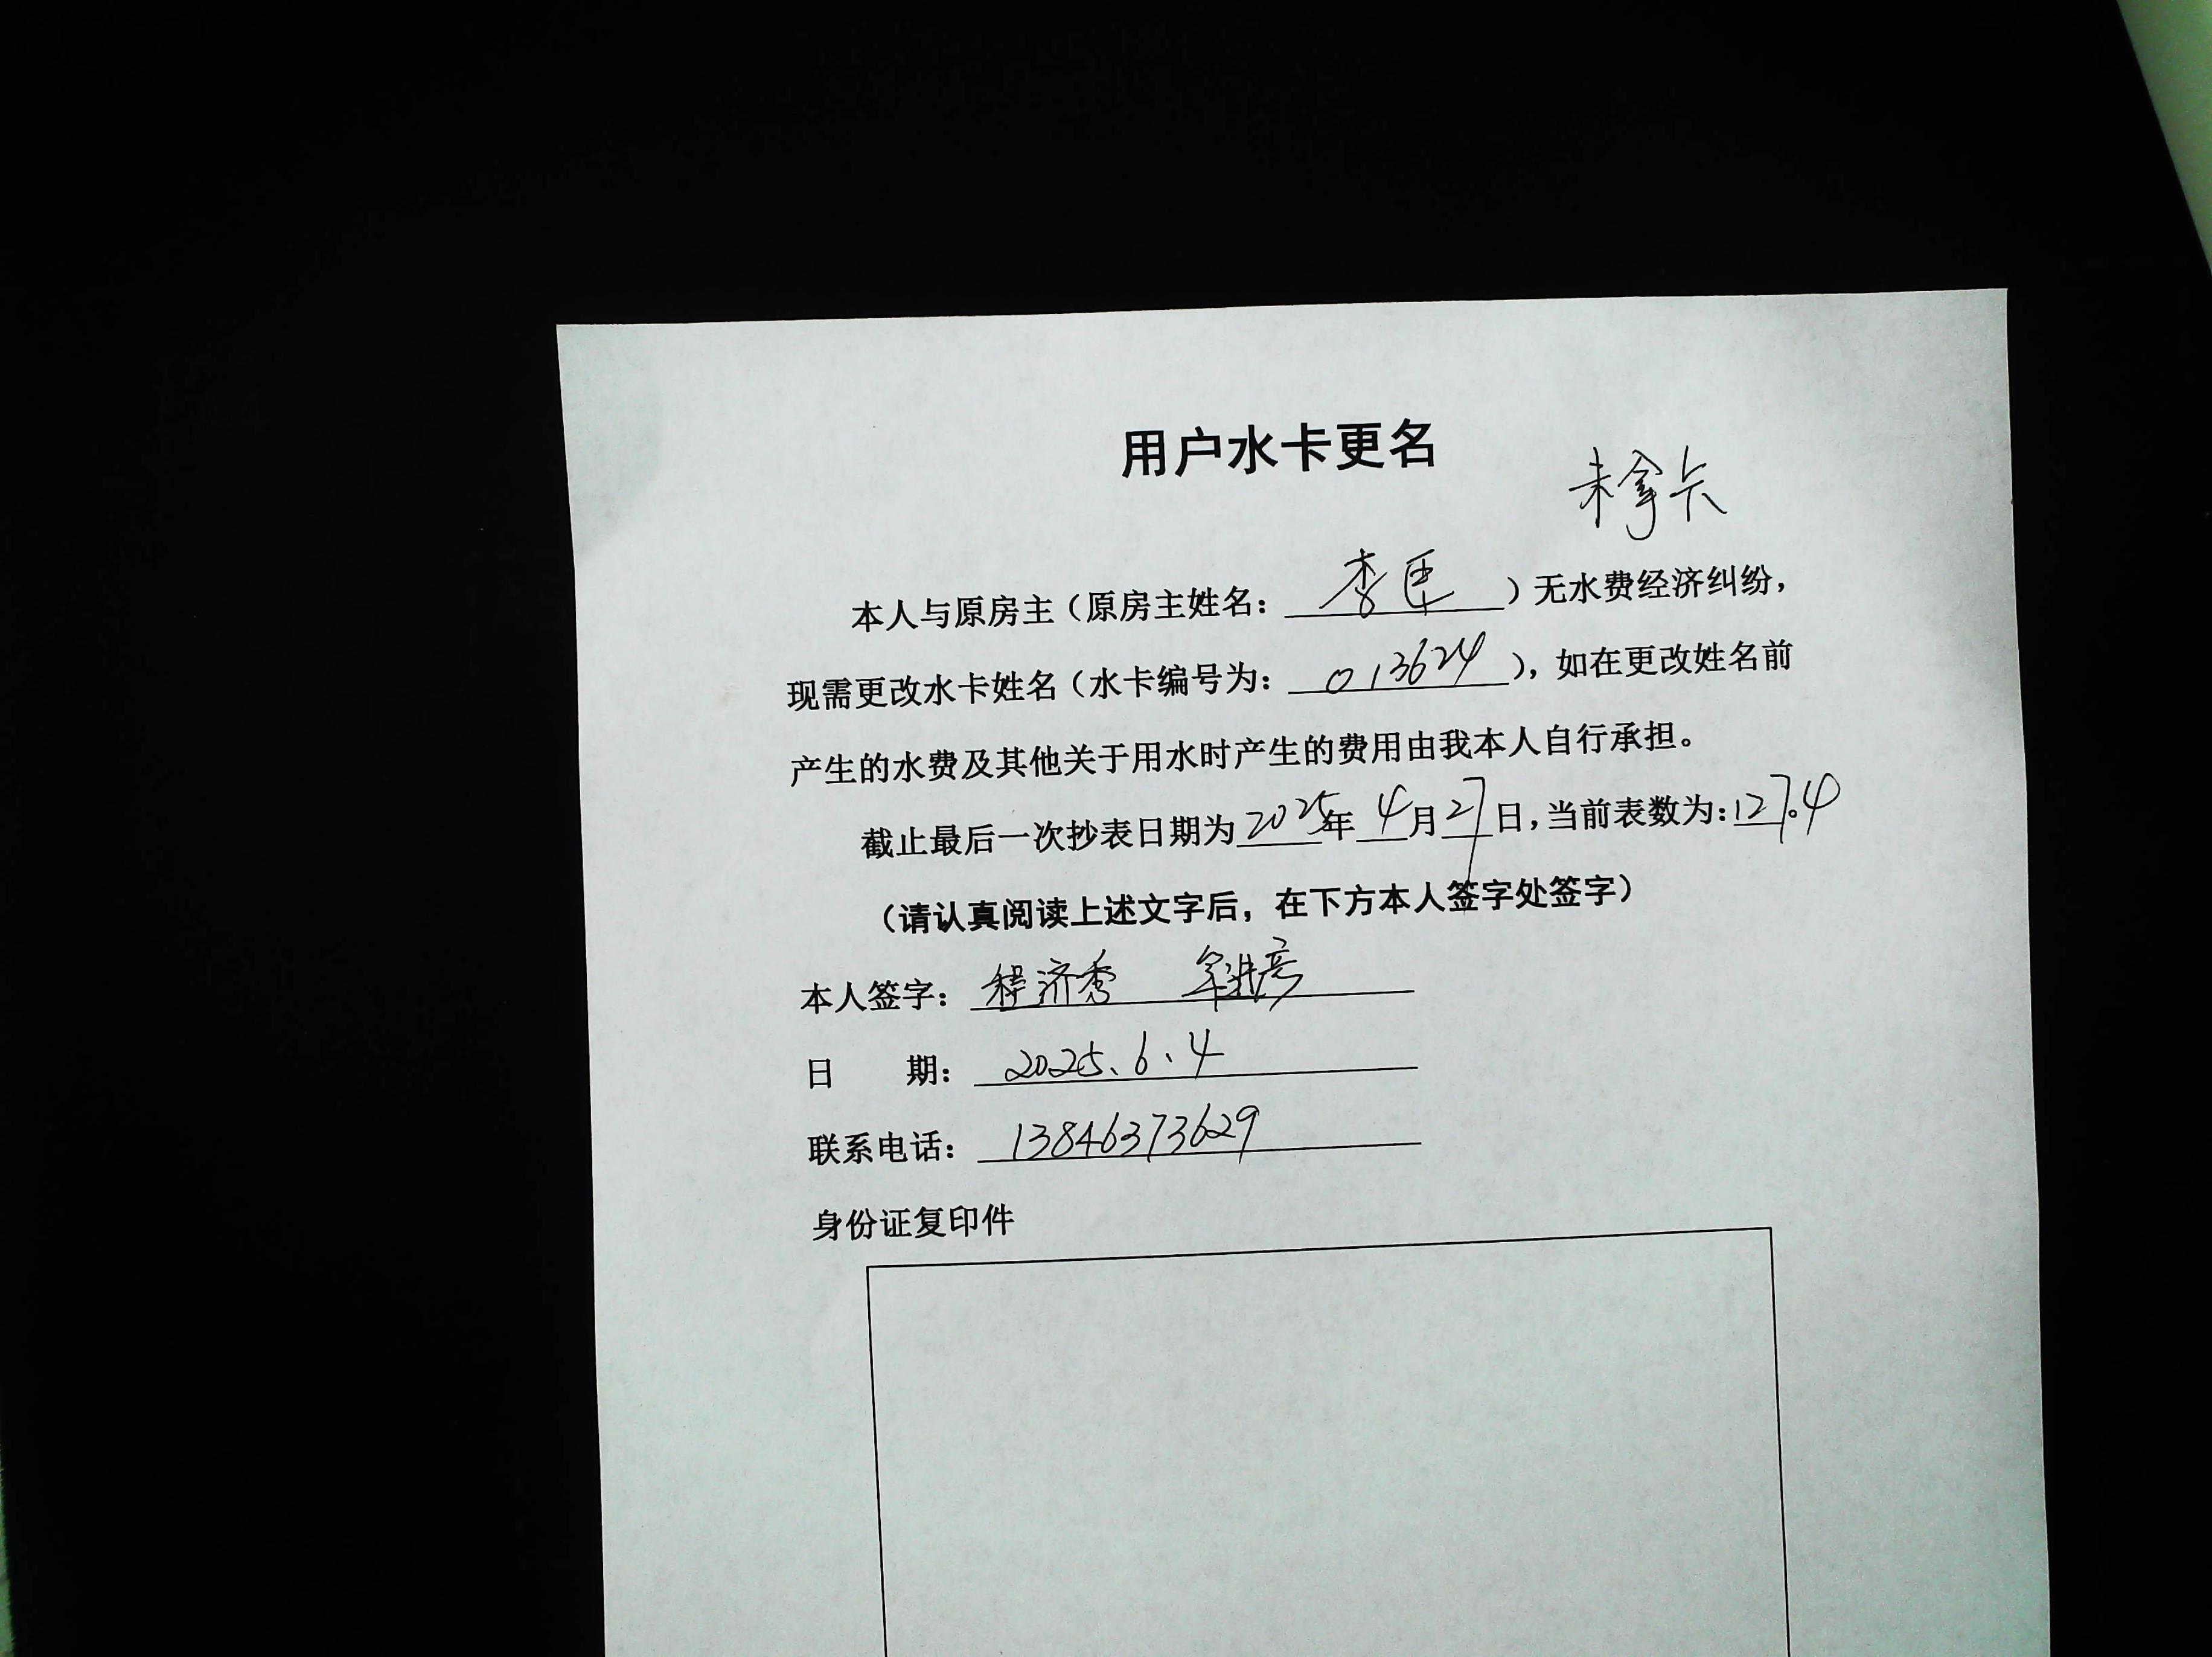 用户水卡更名
未拿卡
本人与原房主（原房主姓名：李）无水费经济纠纷，
现需更改水卡姓名（水卡编号为：013624），如在更改姓名前
产生的水费及其他关于用水时产生的费用由我本人自行承担。
截止最后一次抄表日期为2025年4月27日，当前表数为：127.4
（请认真阅读上述文字后，在下方本人签字处签字）
本人签字：程济秀
日 期：2025、6、4
联系电话：13846373629
身份证复印件